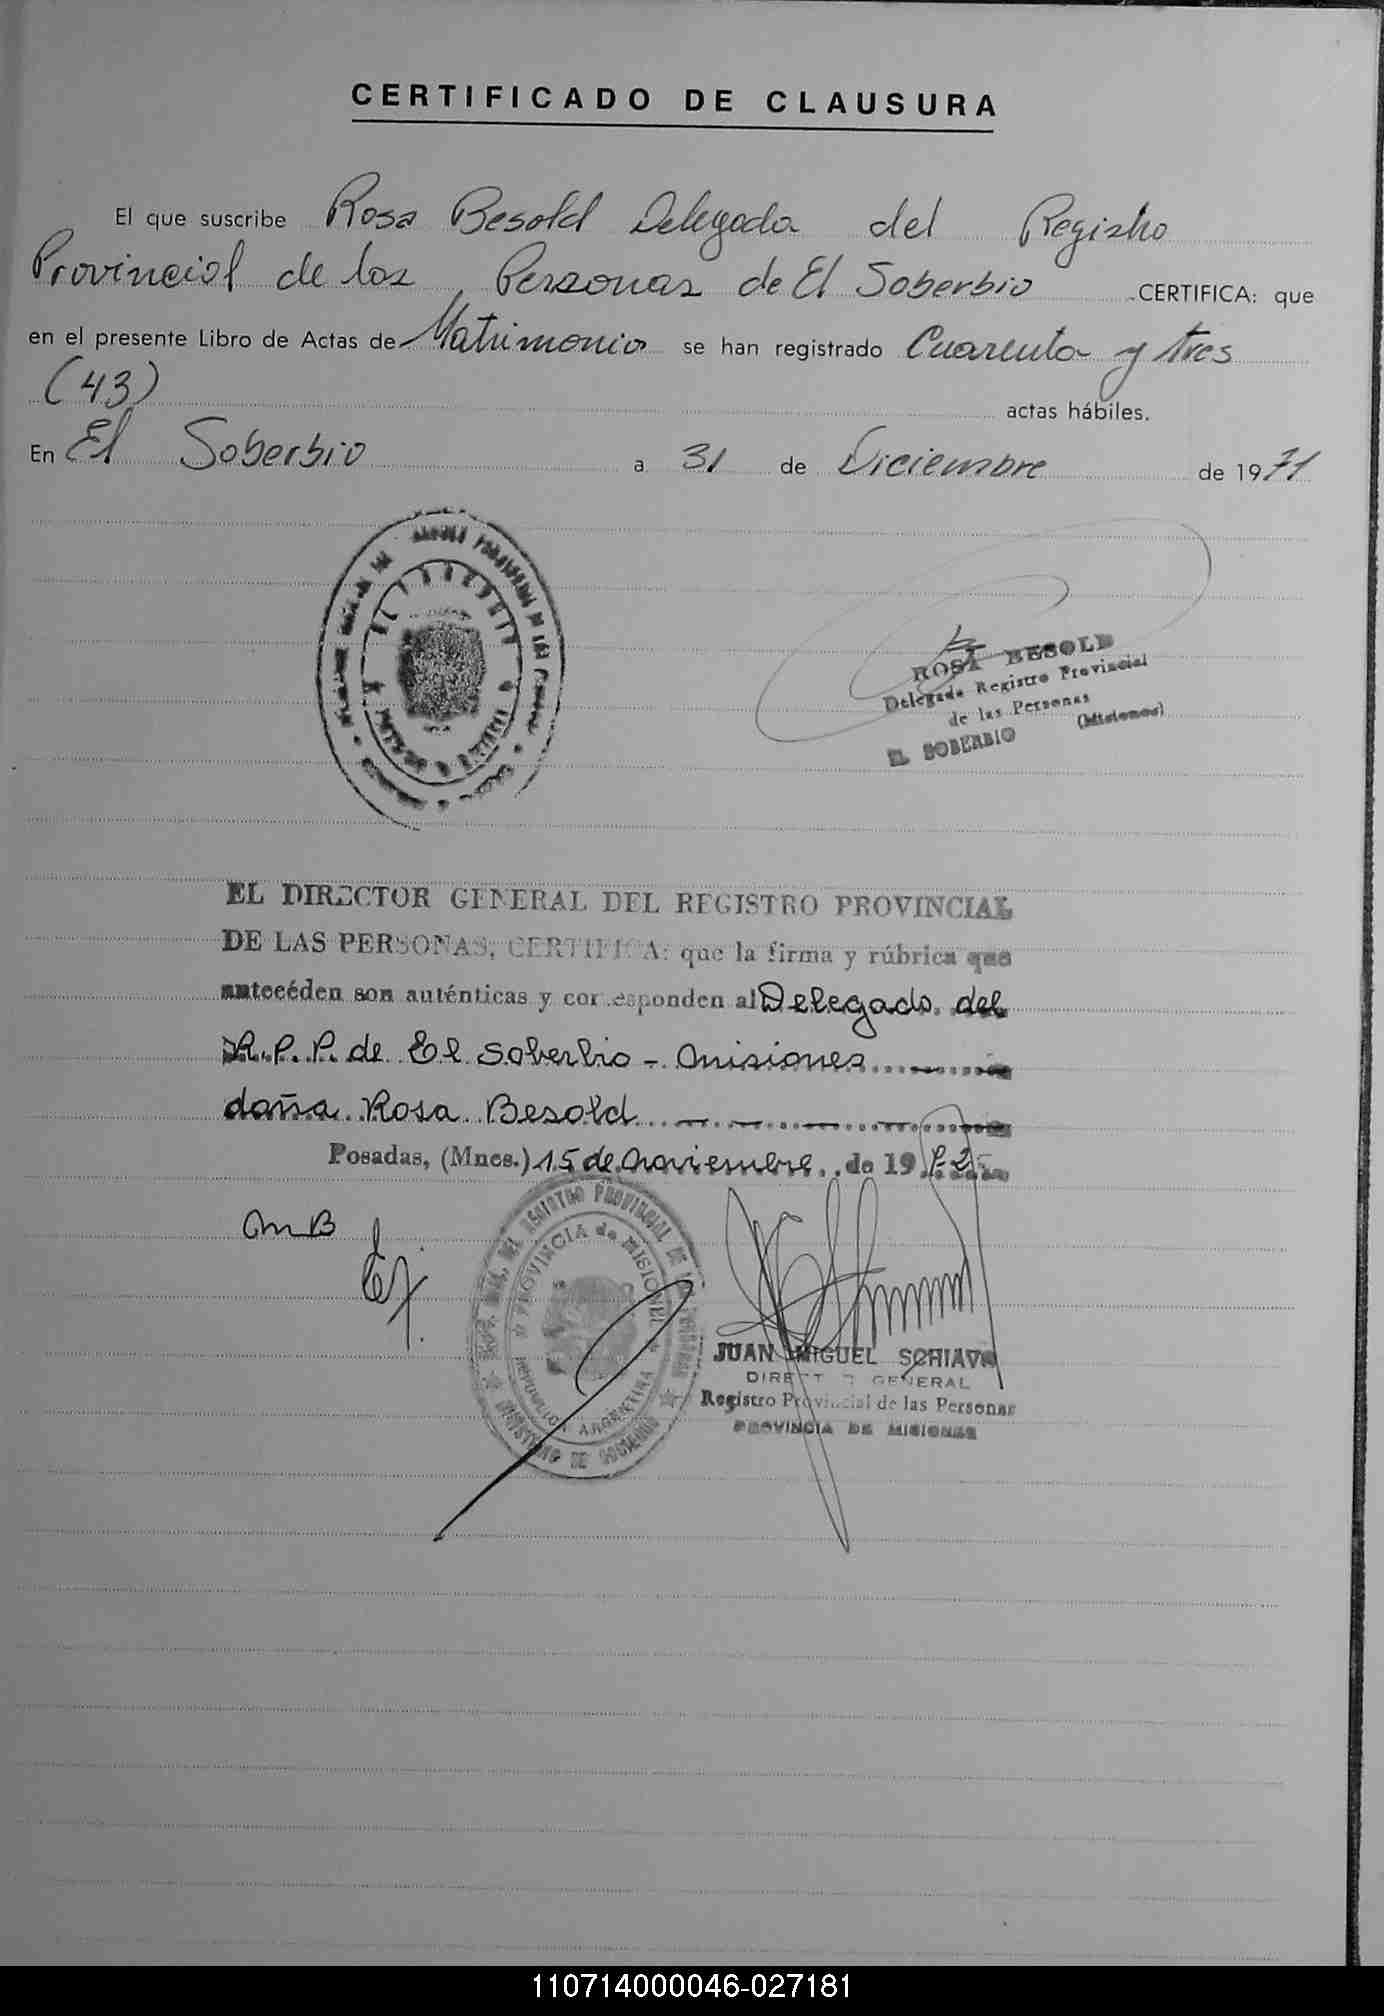 CERTIFICADO DE CLAUSURA
El que suscribe Rosa Besold Delegada del Registro
Provincial de las Personas de El Soberbio CERTIFICA: que
en el presente Libro de Actas de Matrimonio se han registrado Cuarenta y tres
(43) actas hábiles.
En El Soberbio a 31 de Diciembre de 1971
ROSA BESOLD
Delegada Registro Provincial
de las Personas
EL SOBERBIO (Misiones)
EL DIRECTOR GENERAL DEL REGISTRO PROVINCIAL
DE LAS PERSONAS, CERTIFICA: que la firma y rúbrica que
antecéden son auténticas y corresponden al Delegado del
R.P.P. de El Soberbio - Misiones
doña Rosa Besold
Posadas, (Mnes.) 15 de noviembre de 1972
MB
REGISTRO PROVINCIAL DE LAS
PROVINCIA de MISIONES
REPUBLICA ARGENTINA
MINISTERIO DE GOBIERNO
JUAN MIGUEL SCHIAVO
DIRECTOR GENERAL
Registro Provincial de las Personas
PROVINCIA DE MISIONES
110714000046-027181